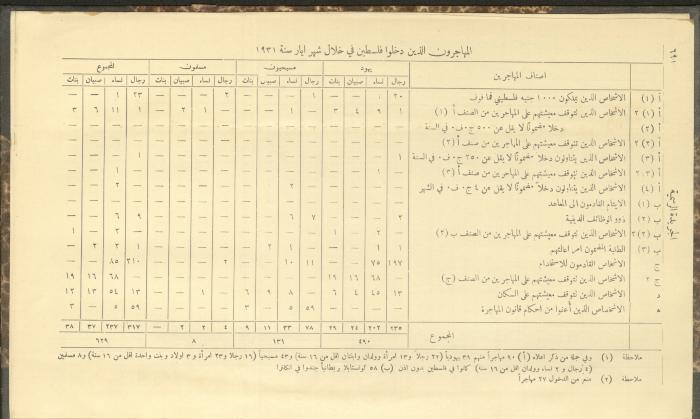 ٦٩١
الجريدة الرسمية
المهاجرون الذين دخلوا فلسطين في خلال شهر ايار سنة ١٩٣١
اصناف المهاجرين يهود مسيحيون مسلمون المجموع
رجال نساء صبيان بنات رجال نساء صبيان بنات رجال نساء صبيان بنات رجال نساء صبيان بنات
أ (١) الاشخاص الذين يملكون ١٠٠٠ جنيه فلسطيني فما فوق ٢٠ ١ — — ١ — — — ٢ — — — ٢٣ ١ — —
أ (١) ٢ الاشخاص الذين تتوقف معيشتهم على المهاجرين من الصنف أ (١) ١ ٩ ٤ ٣ — ١ — — — ١ ٢ — ١ ١١ ٦ ٣
أ (٢) دخلا مضمونًا لا يقل عن ٥٠٠ ج.ف. في السنة
أ (٢) ٢ الاشخاص الذين تتوقف معيشتهم على المهاجرين من صنف أ (٢)
أ (٣) الاشخاص الذين يتناولون دخلاً مضمونًا لا يقل عن ٢٥٠ ج.ف. في السنة ١ — — — — — — — — — — — ١ — — —
أ (٣) ٢ الاشخاص الذين تتوقف معيشتهم على المهاجرين من صنف أ (٣) — ١ — — — — — — — — — — — ١ — —
أ (٤) الاشخاص الذين يتناولون دخلاً مضمونًا لا يقل عن ٤ ج.ف. في الشهر — — — — — ٢ — — — — — — — ٢ — —
ب (١) الايتام القادمون الى المعاهد
ب (٢) ذوو الوظائف الدينية ٢ — — — ٧ ٦ — — — — — — ٩ ٦ — —
ب (٢) ٢ الاشخاص الذين تتوقف معيشتهم على المهاجرين من الصنف ب (٢) — ٢ — ١ — — — — — — — — — ٢ — ١
ب (٣) الطلبة المضمون امر اعالتهم ١ ١ — — — ١ ٢ — — — — — ١ ٢ ٢ —
ج الاشخاص القادمون للاستخدام ١٩٧ ٧٥ — — ١١ ١٠ — — ٢ — — — ٢١٠ ٨٥ — —
ج ٢ الاشخاص الذين تتوقف معيشتهم على المهاجرين من الصنف (ج) — ٦٨ ١٦ ١٩ — — — — — — — — — ٦٨ ١٦ ١٩
د الاشخاص الذين تتوقف معيشتهم على السكان ١٣ ٤٥ ٤ ٦ — ٨ ٩ ٦ — ١ — — ١٣ ٥٤ ١٣ ١٢
ه الاشخاص الذين أُعفوا من احكام قانون المهاجرة — — — — ٥٩ ٥ — ٣ — — — — ٥٩ ٥ — ٣
المجموع ٢٣٥ ٢٠٢ ٢٤ ٢٩ ٧٨ ٣٣ ١١ ٩ ٤ ٢ ٢ — ٣١٧ ٢٣٧ ٣٧ ٣٨
٤٩٠ ١٣١ ٨ ٦٢٩
ملاحظة (١) وفي جملة من ذكر اعلاه (أ) ٩٠ مهاجراً منهم ٣٩ يهودياً (٢٢ رجلاً و١٣ امرأة وولدان وابنتان اقل من ١٦ سنة) و٤٣ مسيحياً (١٦ رجلاً و٢٣ امرأة و٣ اولاد وبنت واحدة اقل من ١٦ سنة) و٨ مسلمين
(٤ رجال و٢ نساء وولدان اقل من ١٦ سنة) كانوا في فلسطين بدون اذن (ب) ٥٨ كونستابلا بريطانياً جندوا في انكلترا
ملاحظة (٢) منع من الدخول ٢٧ مهاجراً